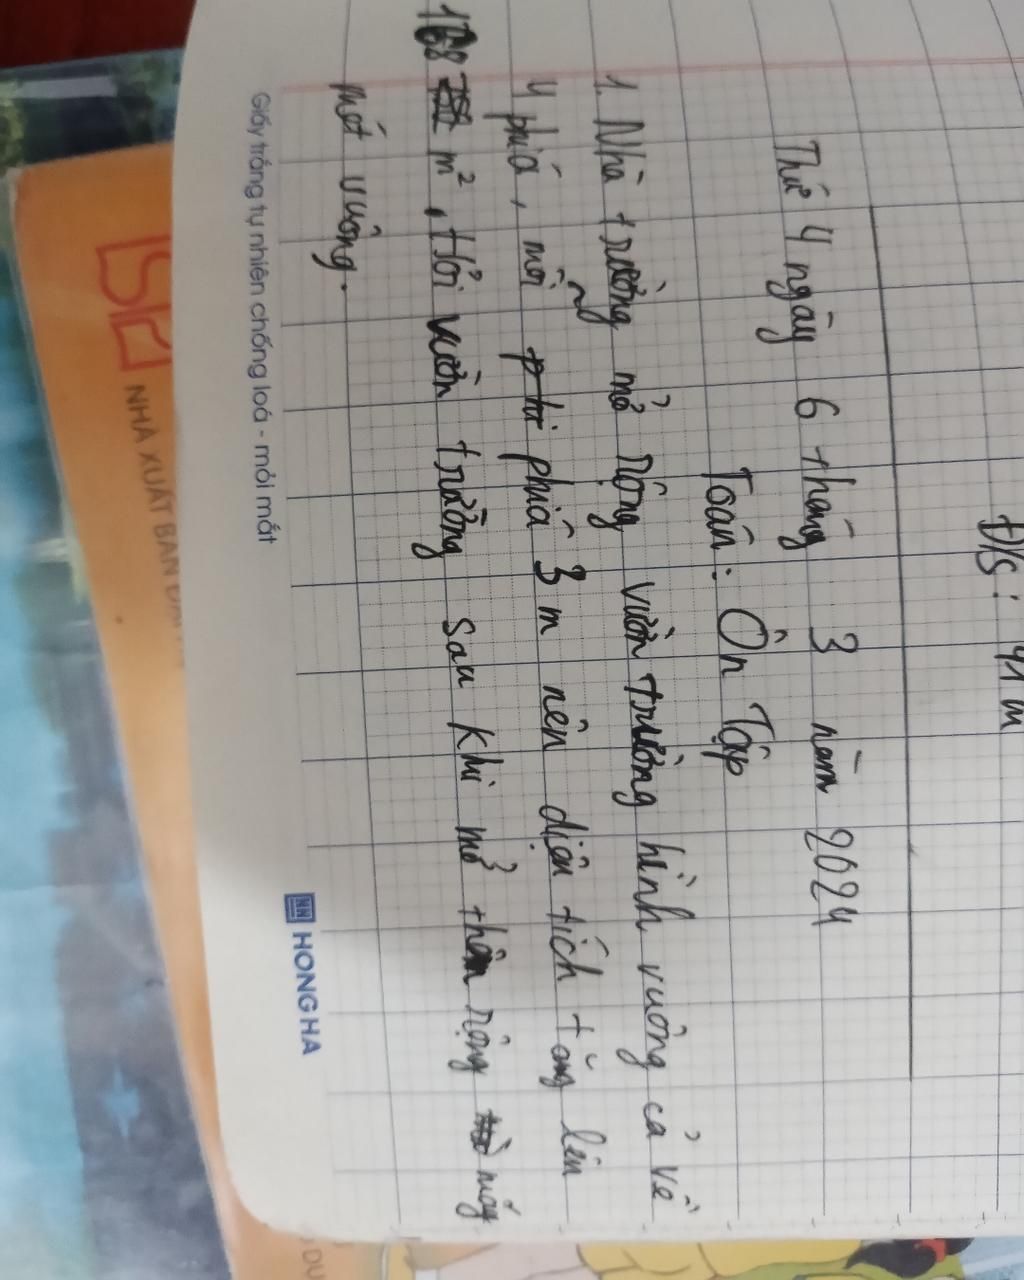 Đ/s: 41 m
Thứ 4 ngày 6 tháng 3 năm 2024
Toán: Ôn Tập
1. Nhà trường mở rộng vườn trường hình vuông cả về
4 phiá, mỗi phiá 3 m nên diện tích tăng lên
168 m², Hỏi vườn trường sau khi mở thêm rộng mấy
mét vuông.
Giấy trắng tự nhiên chống loá - mỏi mắt
HONG HA
NHÀ XUẤT BẢN